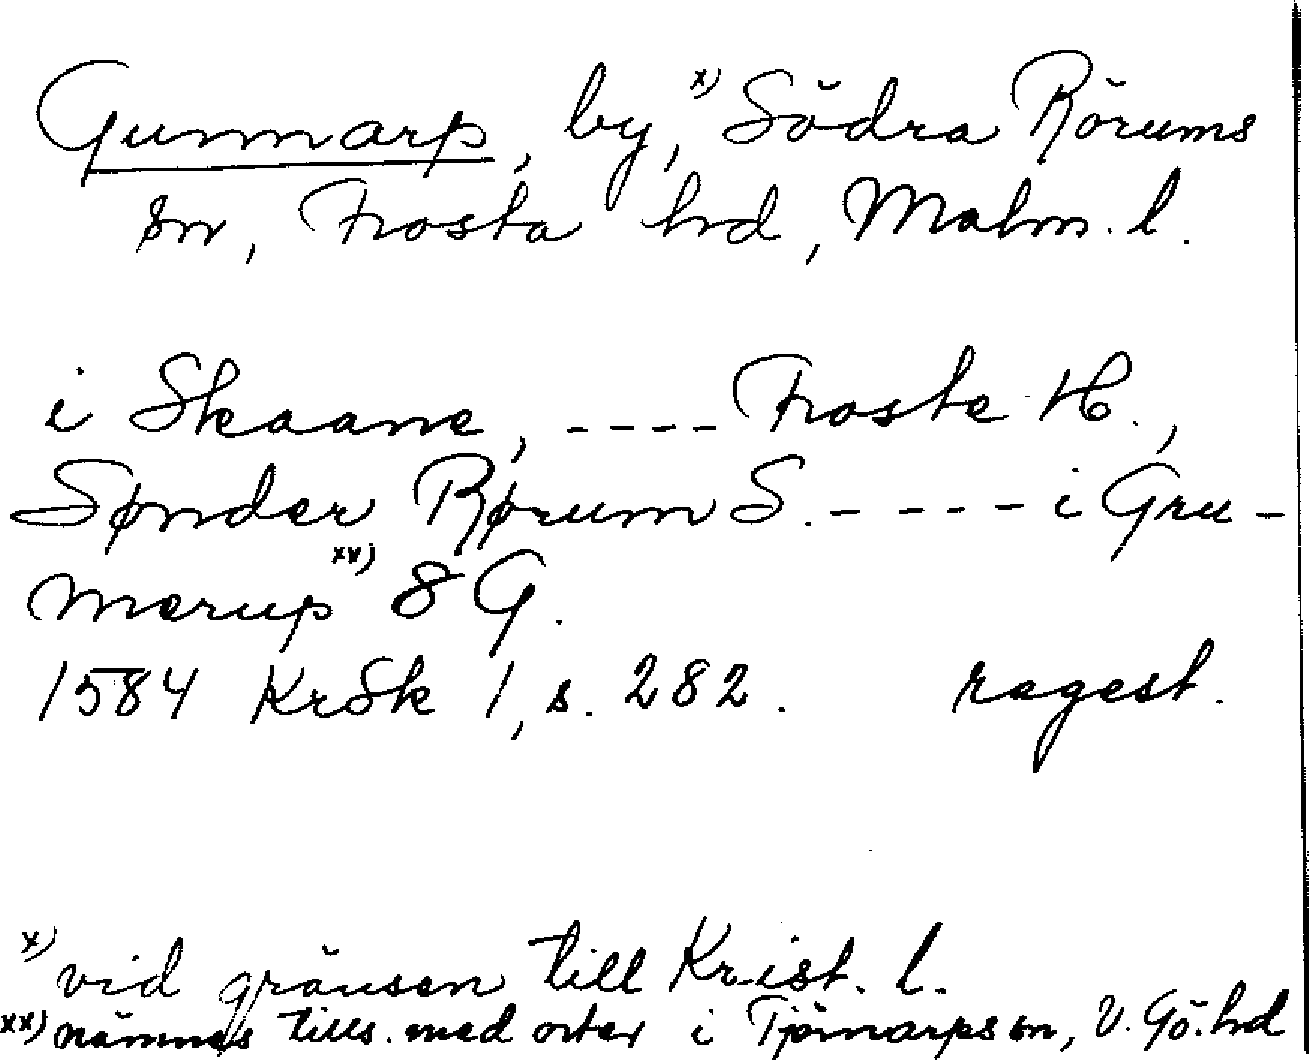 Gunnarp, by,ˣ⁾ Södra Rörums
sn, Frosta hd, Malm. l.
i Skaane, ---- Froste H.,
Sønder Rørum S. ---- i Gru-
merupˣˣ⁾ 8 G.
1584 KrSk 1, s. 282. ragest.
x) vid gränsen till Krist. l.
xx) nämnes tills. med orter i Tjörnarps sn, V. Gö. hd